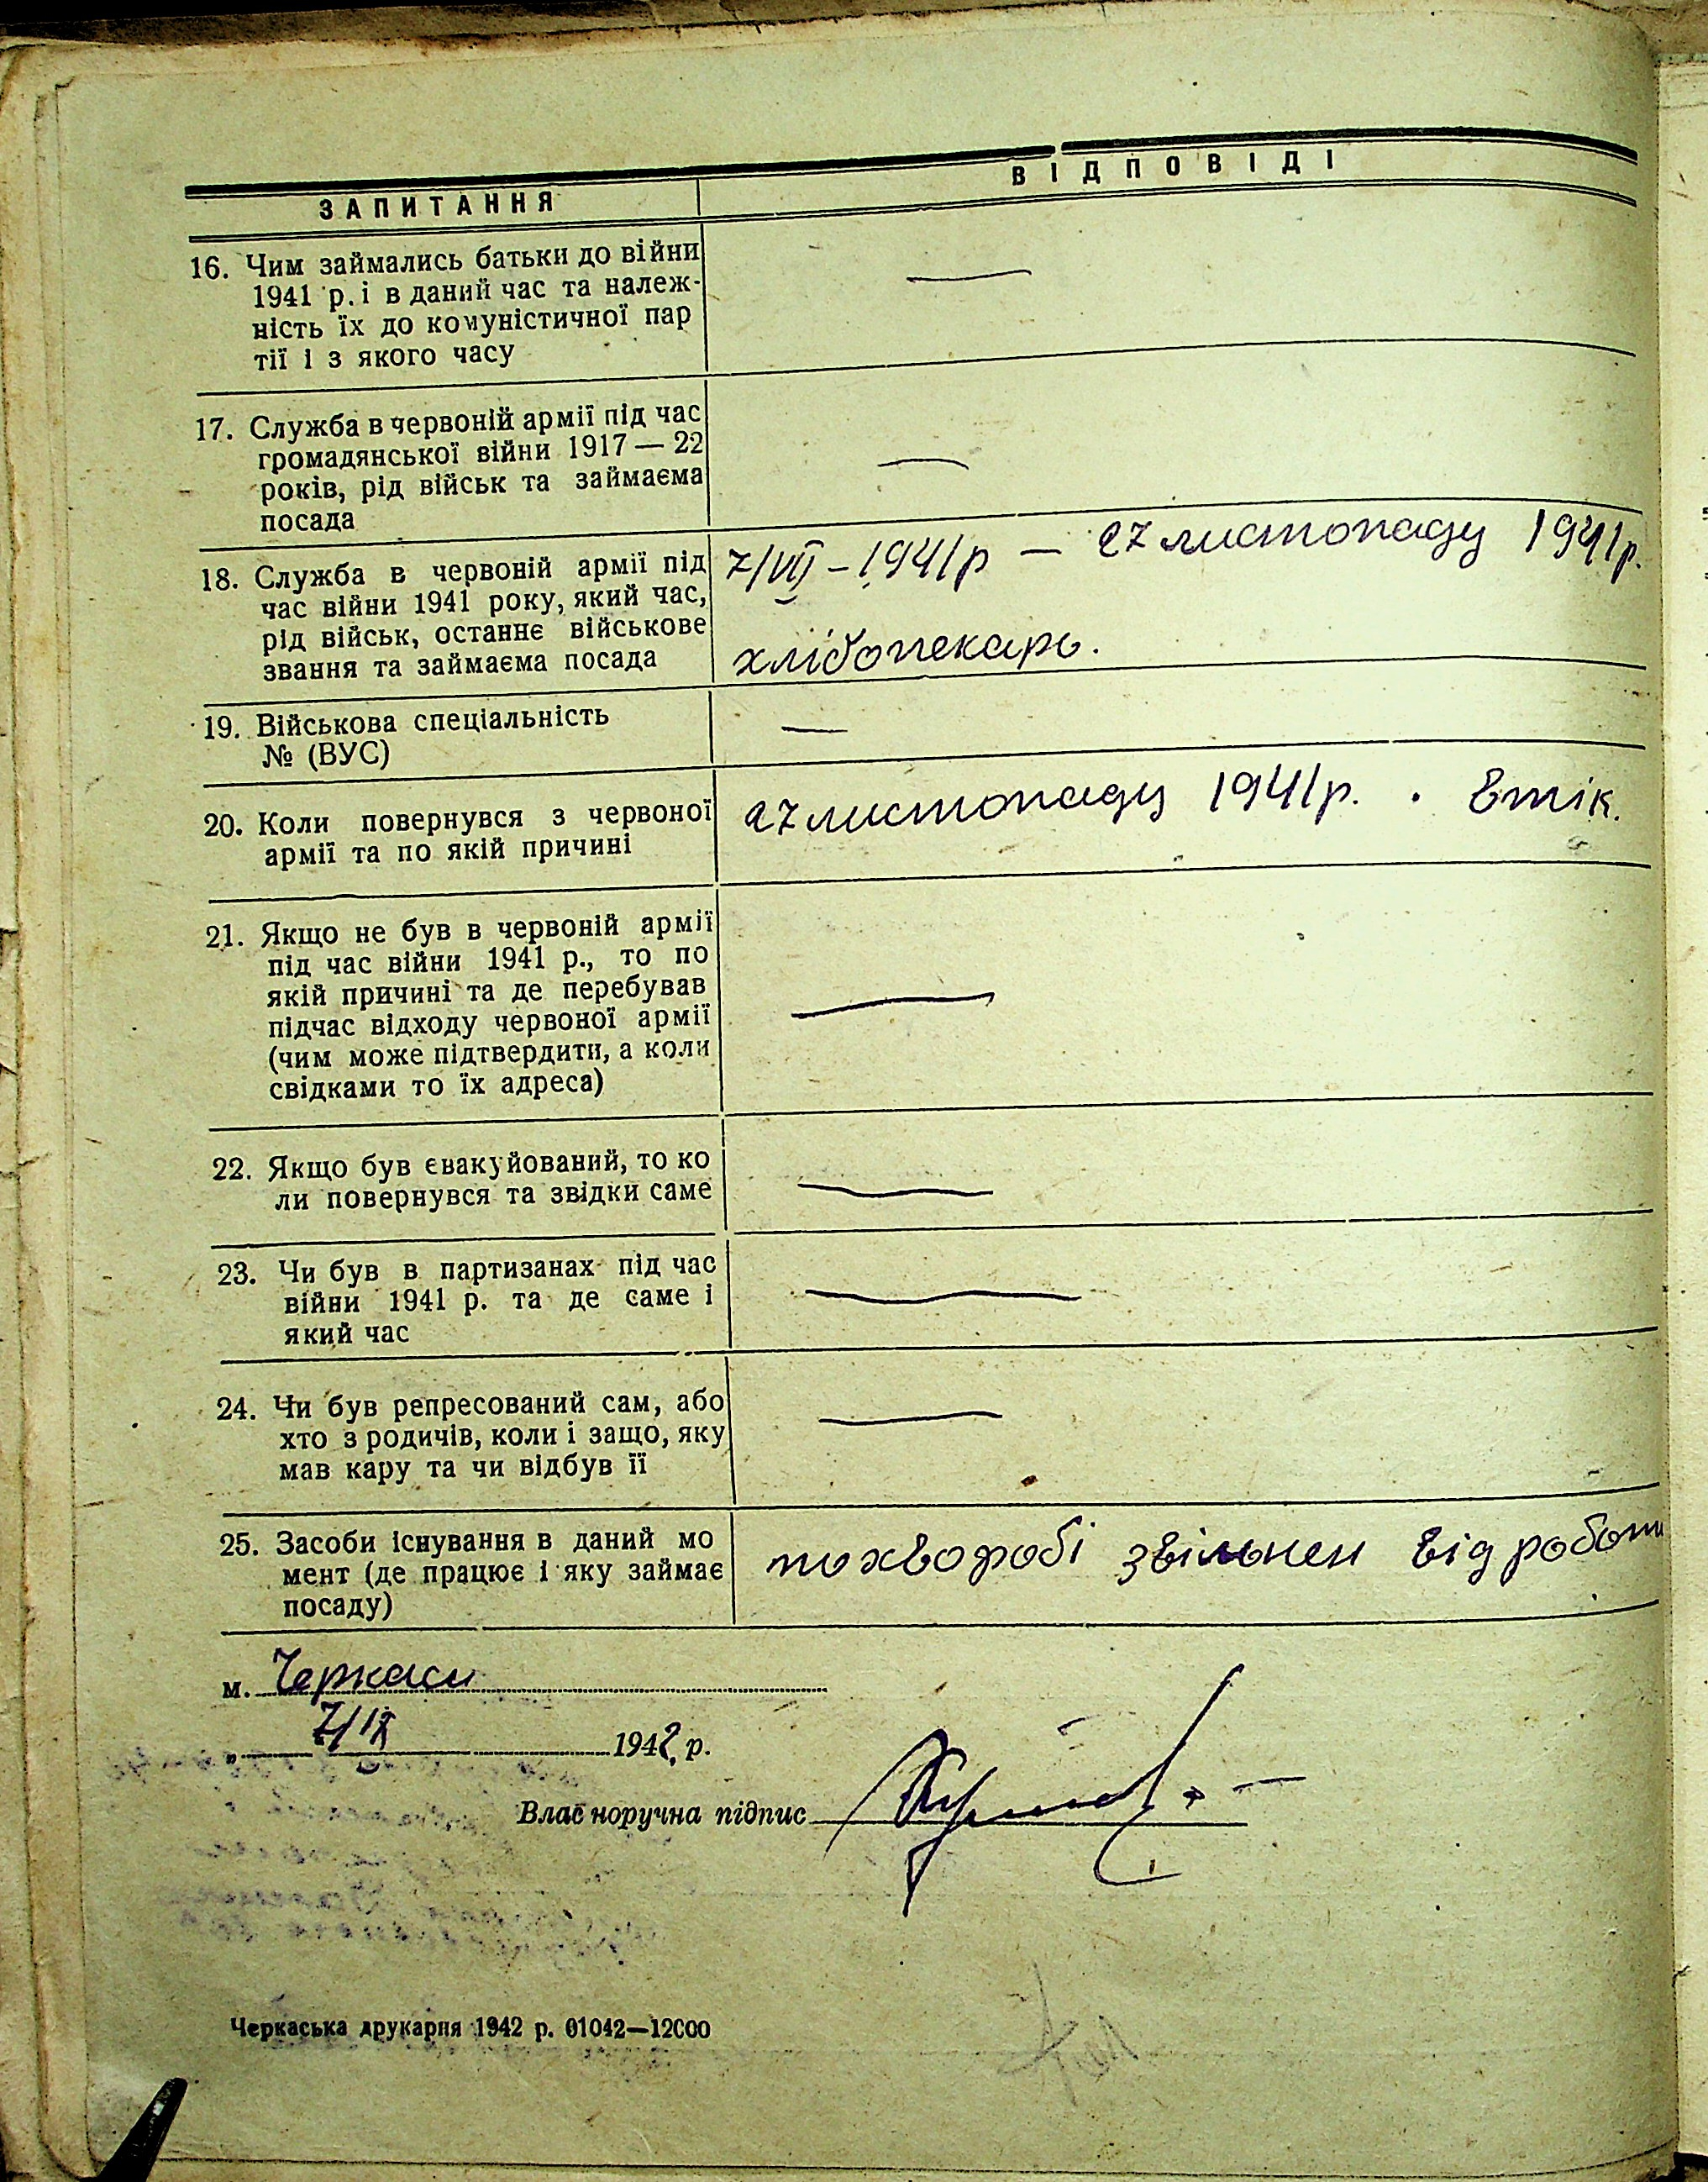 ЗАПИТАННЯ
ВІДПОВІДІ
16. Чим займались батьки до війни
1941 р. і в даний час та належ-
ність їх до комуністичної пар
тії і з якого часу
—
17. Служба в червоній армії під час
громадянської війни 1917 — 22
років, рід військ та займаєма
посада
—
18. Служба в червоній армії під
час війни 1941 року, який час,
рід військ, останнє військове
звання та займаєма посада
7/VII – 1941 р — 27 листопаду 1941 р.
хлібопекарь.
19. Військова спеціальність
№ (ВУС)
—
20. Коли повернувся з червоної
армії та по якій причині
27 листопаду 1941 р. . втік.
21. Якщо не був в червоній армії
під час війни 1941 р., то по
якій причині та де перебував
підчас відходу червоної армії
(чим може підтвердити, а коли
свідками то їх адреса)
—
22. Якщо був евакуйований, то ко
ли повернувся та звідки саме
—
23. Чи був в партизанах під час
війни 1941 р. та де саме і
який час
—
24. Чи був репресований сам, або
хто з родичів, коли і защо, яку
мав кару та чи відбув її
—
25. Засоби існування в даний мо
мент (де працює і яку займає
посаду)
по хворобі звільнен від роботи
м. Черкаси
„ 7/IX 1942 р.
Власноручна підпис
Черкаська друкарня 1942 р. 01042—12000